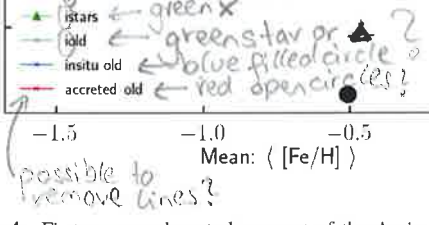 istars ← green X
iold ← green star or ▲ ?
insitu old ← blue filled circle
accreted old ← red open circles?
−1.5 −1.0 −0.5
Mean: ⟨ [Fe/H] ⟩
possible to
remove lines?